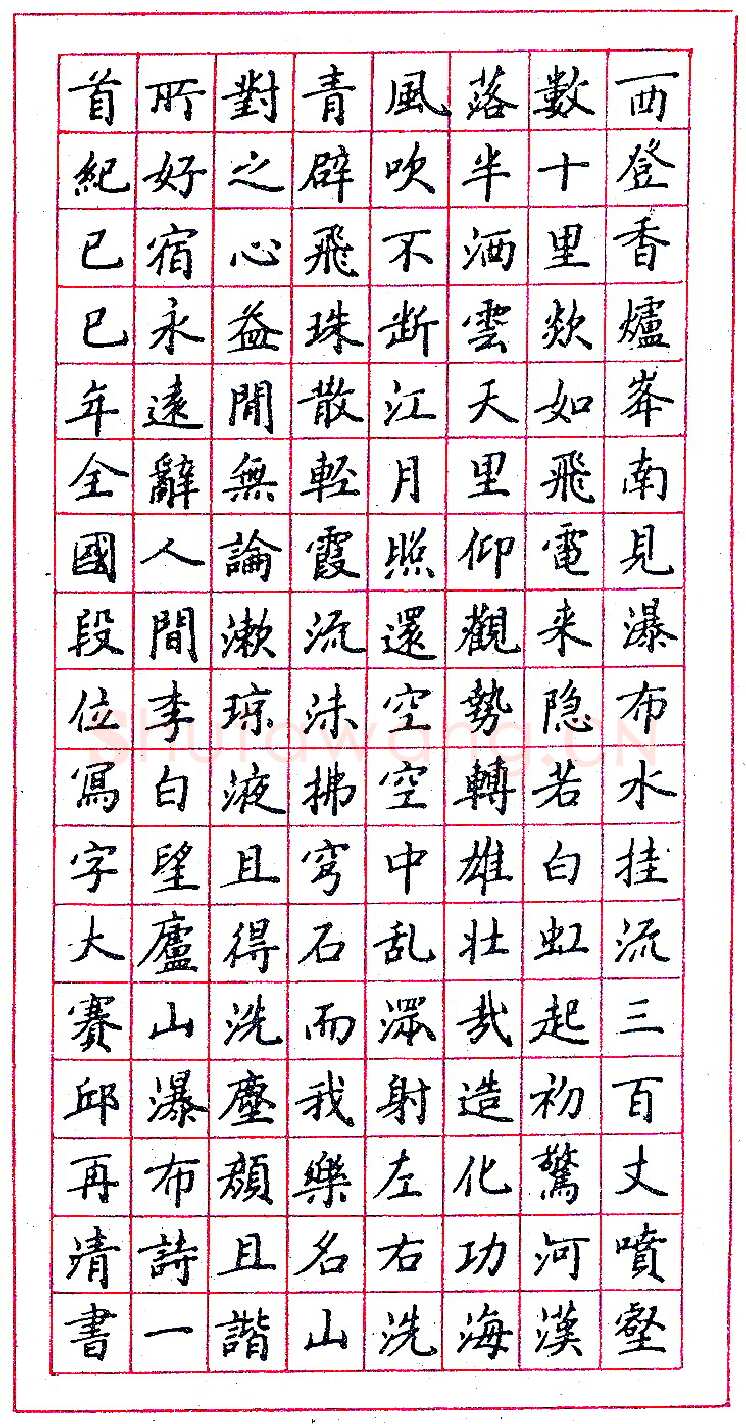 西登香爐峯南見瀑布水挂流三百丈噴壑
數十里欻如飛電来隐若白虹起初驚河漢
落半洒雲天里仰觀勢轉雄壮哉造化功海
風吹不断江月照還空空中乱潈射左右洗
青辟飛珠散軽霞流沫拂穹石而我樂名山
對之心益閒無論漱琼液且得洗塵顔且諧
所好宿永遠辭人間李白望廬山瀑布詩一
首紀已巳年全國段位寫字大賽邱再清書
Shufawang.CN